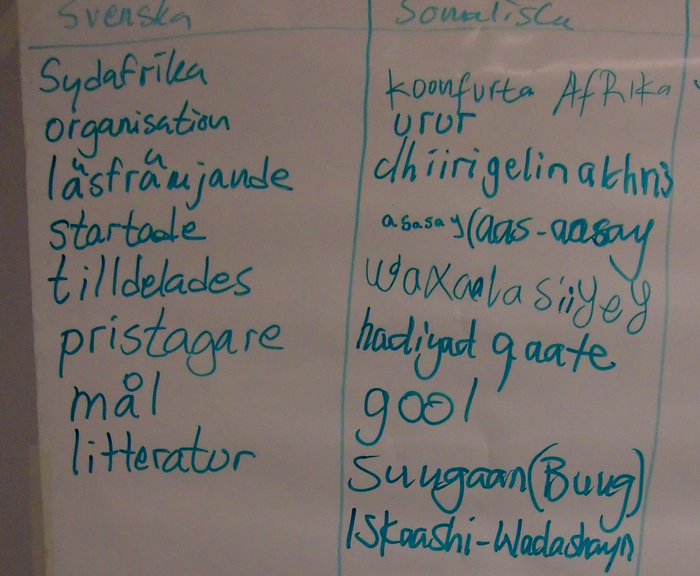 Svenska Somaliska
Sydafrika Koonfurta AfRika
organisation urur
läsfrämjande dhiirigelin akhris
startade asasay (aas-aasay
tilldelades waxaala siiyey
pristagare hadiyad qaate
mål gool
litteratur Suugaan (Buug)
ISkaashi-Wadashayn